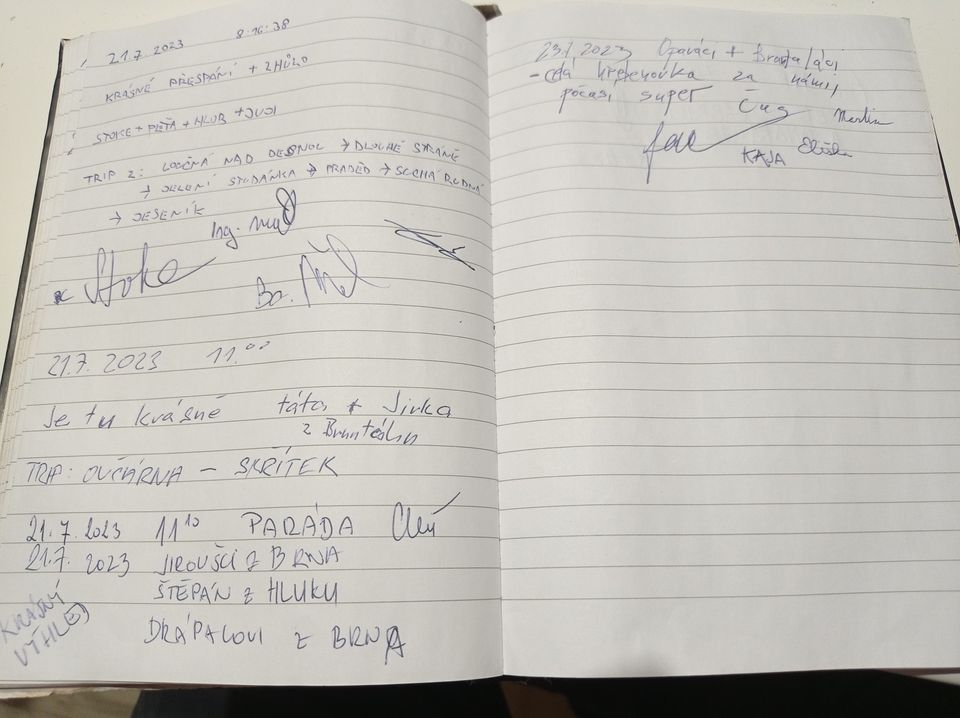 21.7.2023 8:16:38
KRÁSNÉ PŘESPÁNÍ +
STOKE + PÉŤA + HLUB + JUJI
TRIP z: LOUČNÁ NAD DESNOU → DLOUHÉ STRÁNĚ
→ JELENÍ STUDÁNKA → PRADĚD → SUCHÁ RUDNÁ
→ JESENÍK
Ing.
Stoke
Bc.
21.7.2023 11.00
Je tu krásně táta + Jirka
z Bruntálu
TRIP: OVČÁRNA - SKŘÍTEK
21.7.2023 11 10 PARÁDA
21.7.2023 JIROUŠCI z BRNA
ŠTĚPÁN z HLUKU
KRÁSNÝ
VÝHLED
DRÁPALOVI z BRNA
23.7.2023 Opaváci +
- celá hřebenovka za námi,
počasí super
Martin
KAJA Eliška